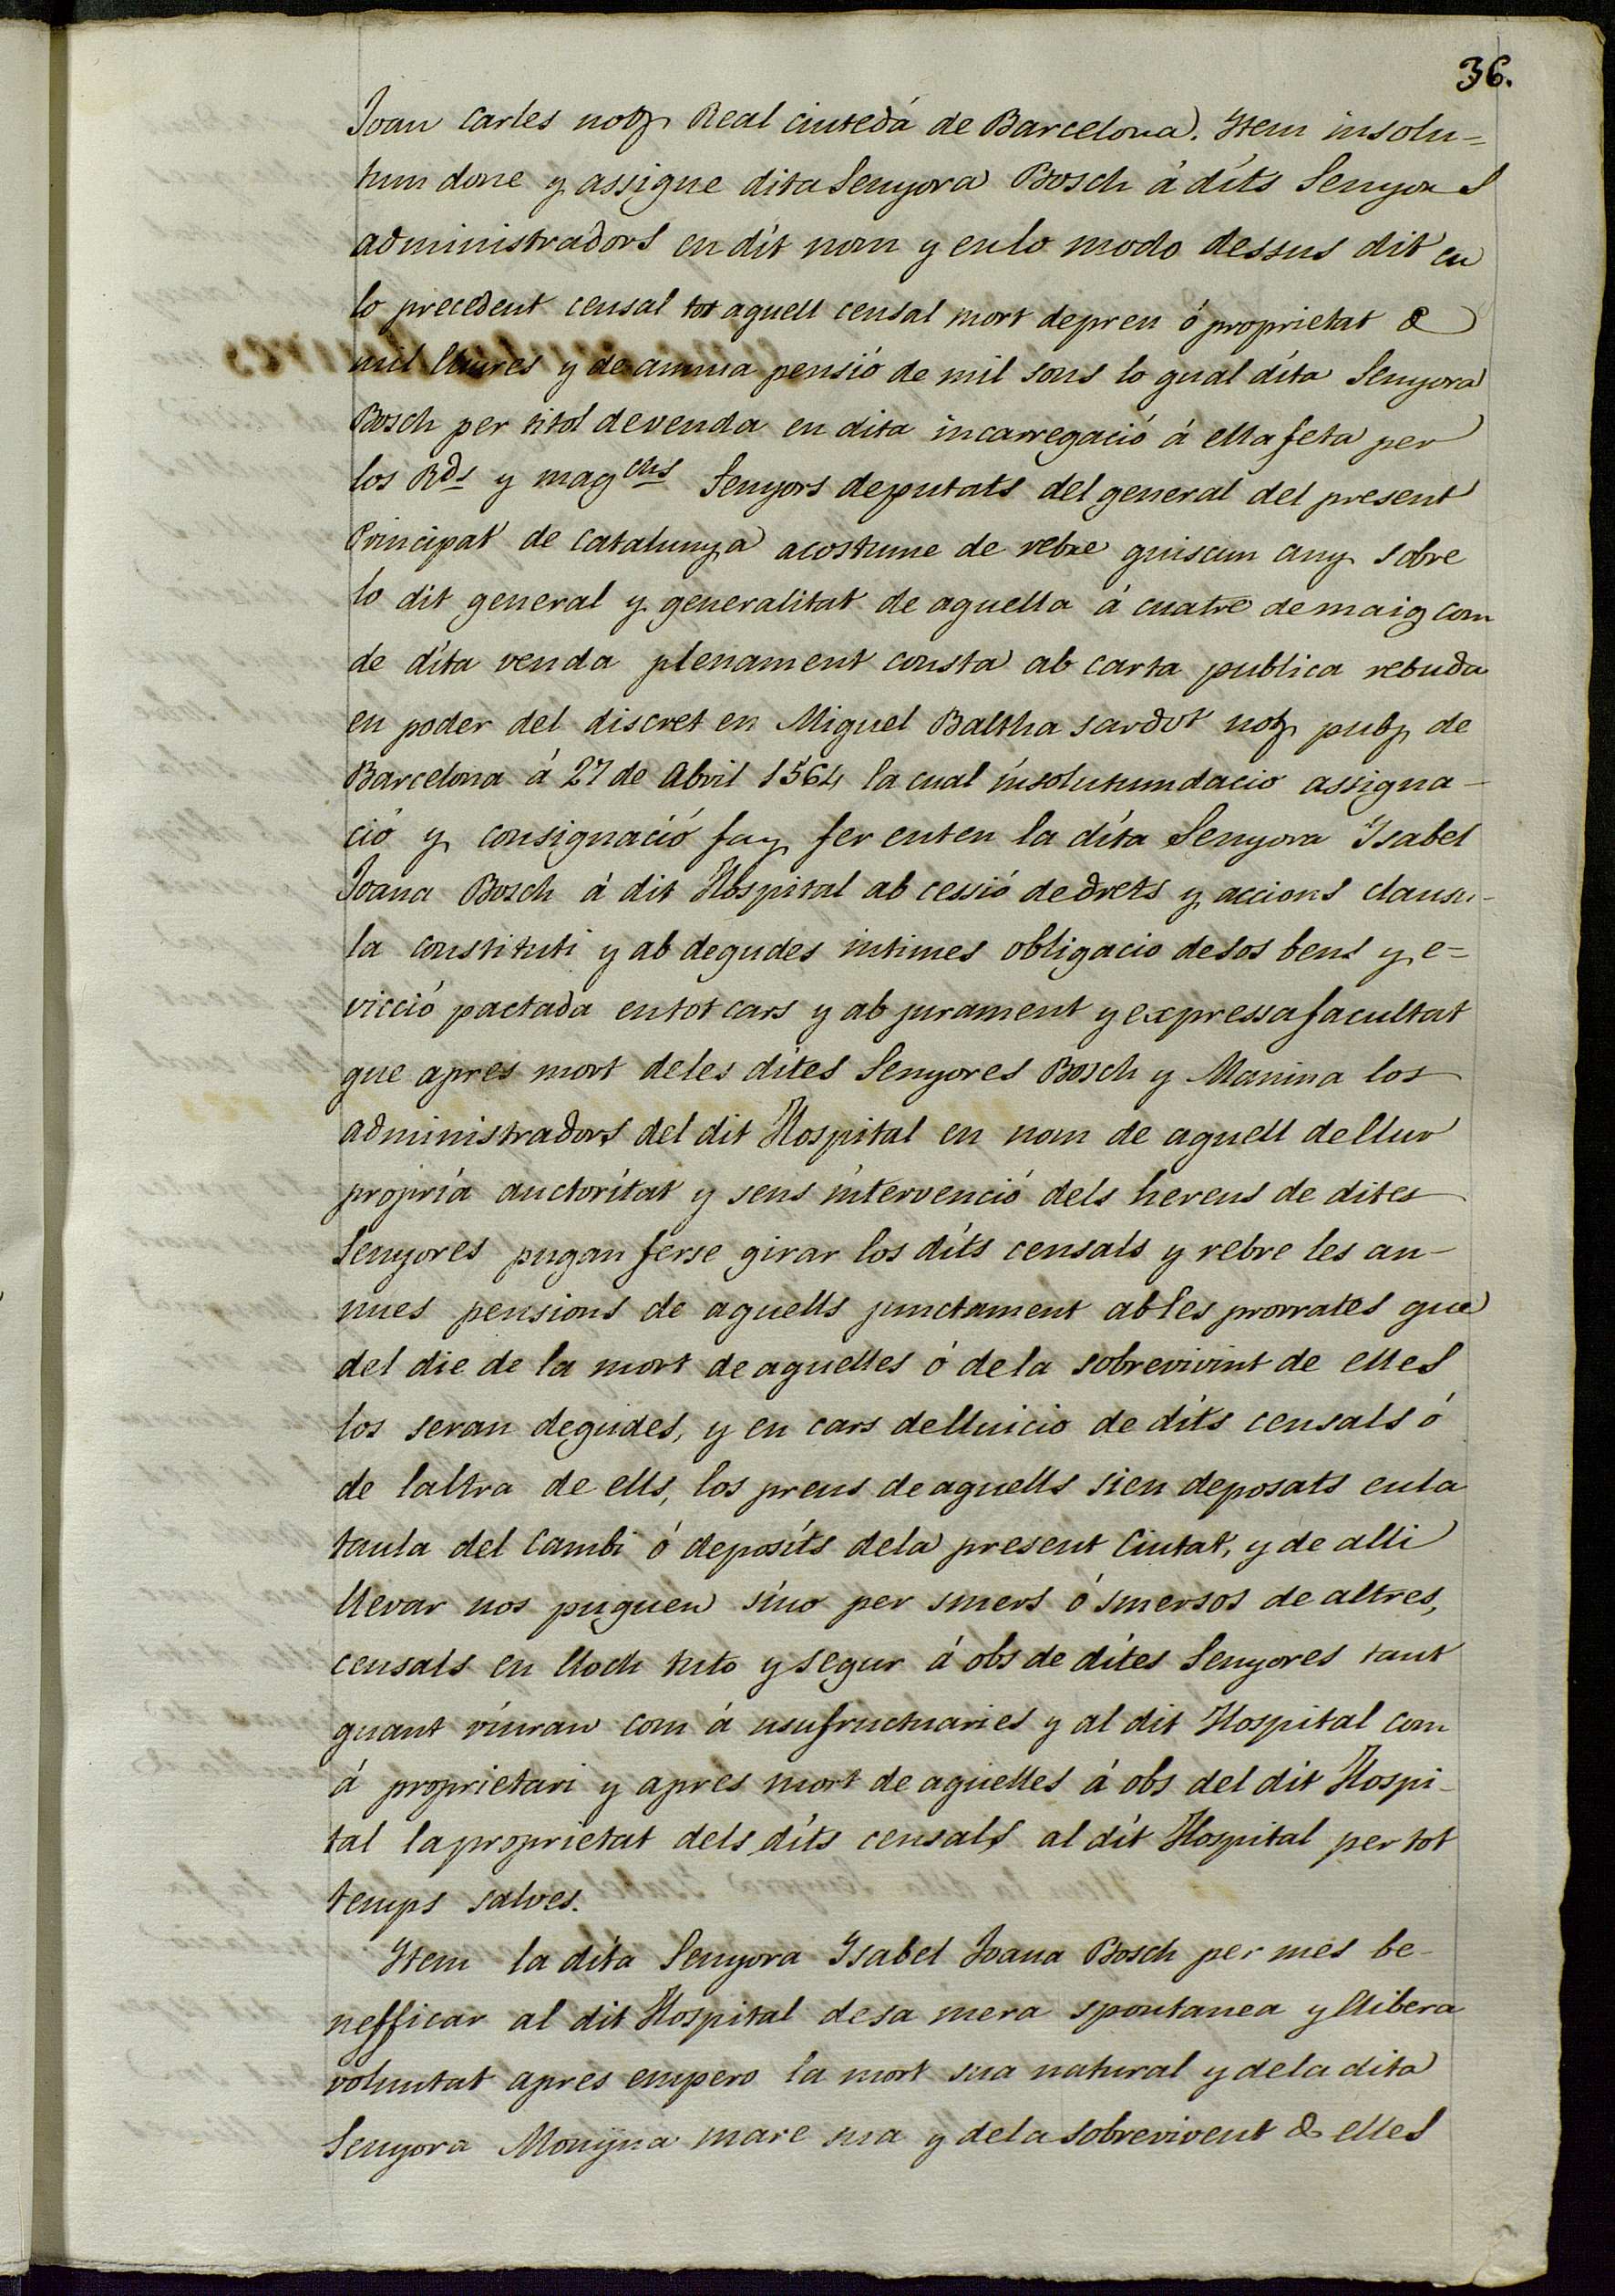 36.
Joan Carles noty Real ciutedá de Barcelona. Item insolu=
tum done y assigne dita Senyora Bosch á díts Senyors
administradors en dít nom y en lo modo dessus dit en
lo precedent censal tot aquell censal mort de preu ó proprietat de
mil lliures y de annua pensió de mil sous lo qual díta Senyora
Bosch per titol de venda en dita incarregació á ella feta per
los Rds y magchs Senyors deputats del general del present
Principat de Catalunya acostume de rebre quiscun any sobre
lo dit general y generalitat de aquella á cuatre de maig com
de díta venda plenament consta ab carta publica rebuda
en poder del discret en Miquel Baltha sardot noty puby de
Barcelona á 27 de Abril 1564 la cual insolutumdacio assigna-
ció y consignació fay fer enten la díta Senyora Ysabel
Joana Bosch á dit Hospital ab cessió de drets y accions clausu-
la constituti y ab degudes intimes obligacio de sos bens y e=
vicció pactada en tot cars y ab jurament y expressa facultat
que apres mort de les dítes Senyores Bosch y Manina los
administradors del dit Hospital en nom de aquell de llur
propría auctorítat y sens íntervenció dels hereus de dites
Senyores pugan ferse girar los díts censals y rebre les an-
nues pensions de aquells junctament ab les prorrates que
del die de la mort de aquelles ó de la sobrevivint de elles
los seran degudes, y en cars de lluicio de díts censals ó
de laltra de ells, los preus de aquells sien deposats en la
taula del Cambi ó deposíts de la present Ciutat, y de alli
llevar nos puguen síno per smers ó smersos de altres,
censals en lloch tuto y segur á obs de dítes Senyores tant
quant víuran com á usufructuaries y al dit Hospital com
á proprietari y apres mort de aquelles á obs del dit Hospi-
tal la proprietat dels díts censals al dít Hospital per tot
temps salves.
Item la díta Senyora Ysabel Joana Bosch per mes be-
nefficar al dit Hospital de sa mera spontanea y llibera
voluntat apres empero la mort sua natural y de la dita
Senyora Monijna mare sua y de la sobrevivent de elles